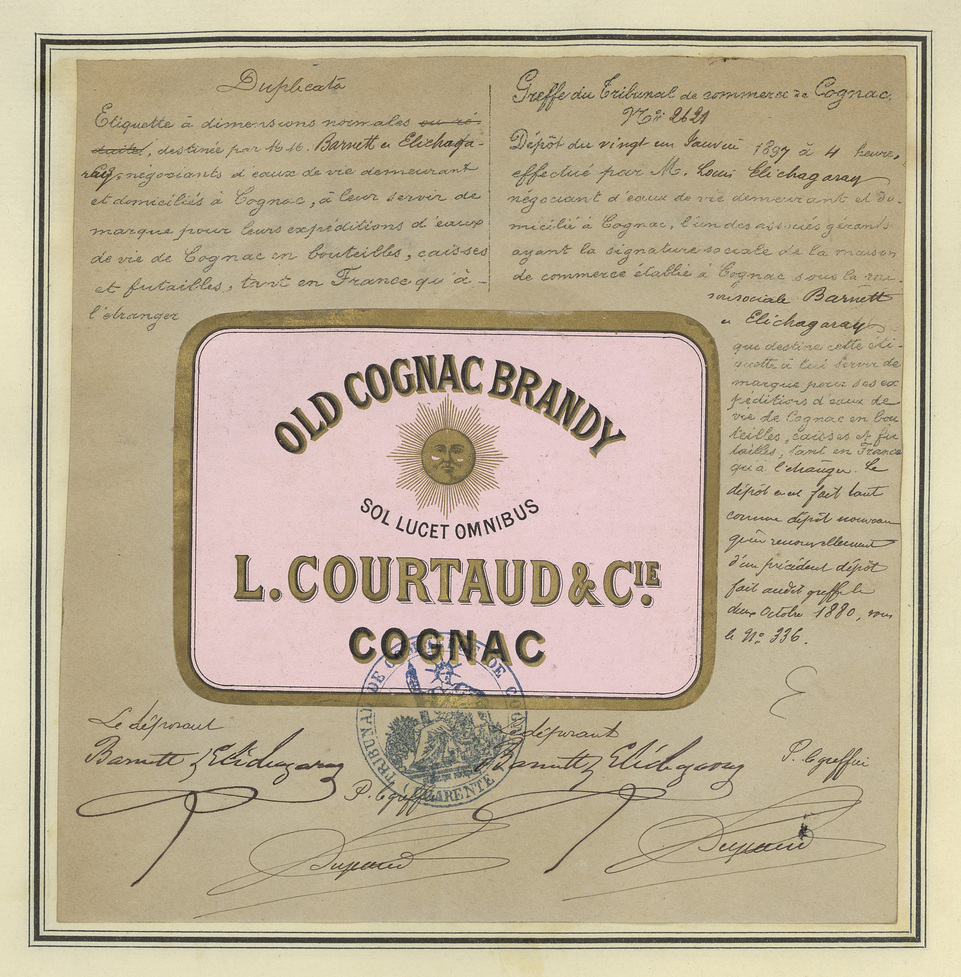 Duplicata
Etiquette à dimensions normales ou ré-
duites, destinée par MM. Barnett et Elichaga-
ray, négociants d'eaux de vie demeurant
et domiciliés à Cognac, à leur servir de
marque pour leurs expéditions d'eaux
de vie de Cognac en bouteilles, caisses
et futailles, tant en France qu'à
l'étranger
Greffe du Tribunal de commerce de Cognac.
No: 2621
Dépôt du vingt un Janvier 1897 à 4 heures,
effectué par M. Louis Elichagaray
négociant d'eaux de vie demeurant et do-
micilié à Cognac, l'un des associés gérants
ayant la signature sociale de la maison
de commerce établie à Cognac sous la rai-
son sociale Barnett
et Elichagaray
qui destine cette éti-
quette à lui servir de
marque pour ses ex
péditions d'eaux de
vie de Cognac en bou
teilles, caisses et fu
tailles, tant en France
qu'à l'étranger. Le
dépôt en est fait tant
comme dépôt nouveau
qu'en renouvellement
d'un précédent dépôt
fait audit greffe le
deux Octobre 1880, sous
le No 336.
OLD COGNAC BRANDY
SOL LUCET OMNIBUS
L. COURTAUD & CIE.
COGNAC
TRIBUNAL DE COMMERCE DE COGNAC
(CHARENTE)
Le déposant
Barnett & Elichagaray
P. le greffier
Le déposant
Barnett & Elichagaray
P. le greffier